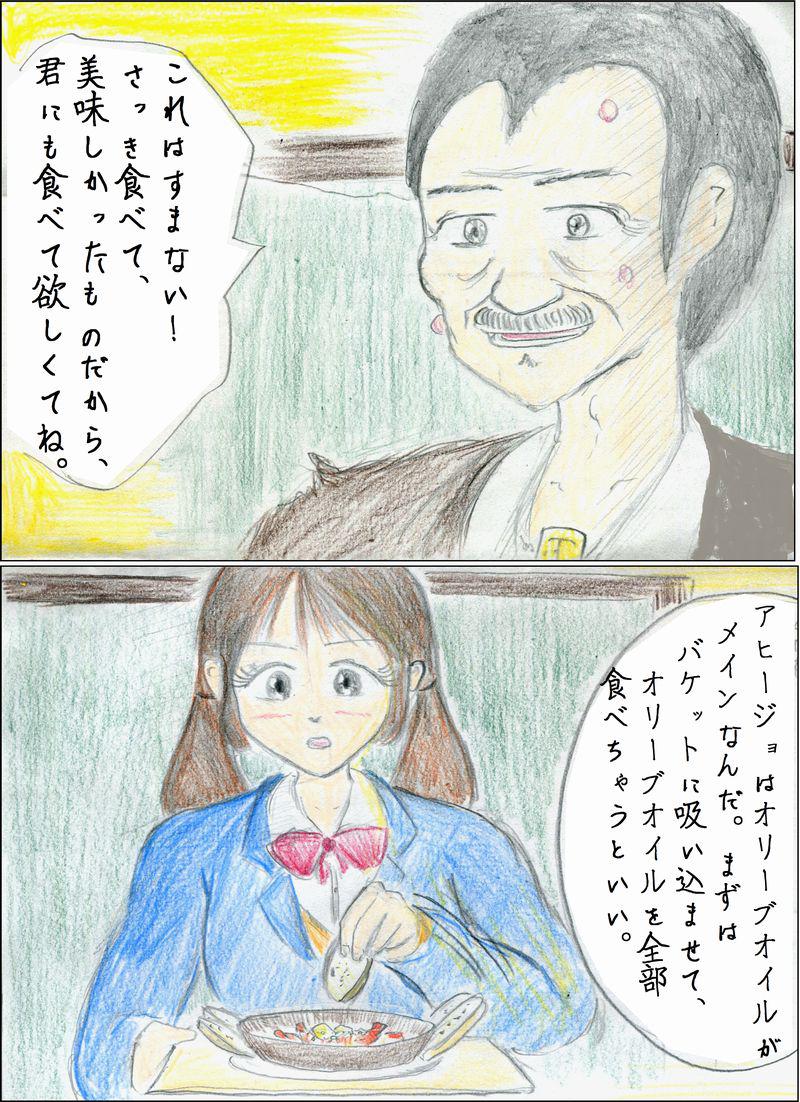 これはすまない！
さっき食べて、
美味しかったものだから、
君にも食べて欲しくてね。
アヒージョはオリーブオイルが
メインなんだ。まずは
バケットに吸い込ませて、
オリーブオイルを全部
食べちゃうといい。